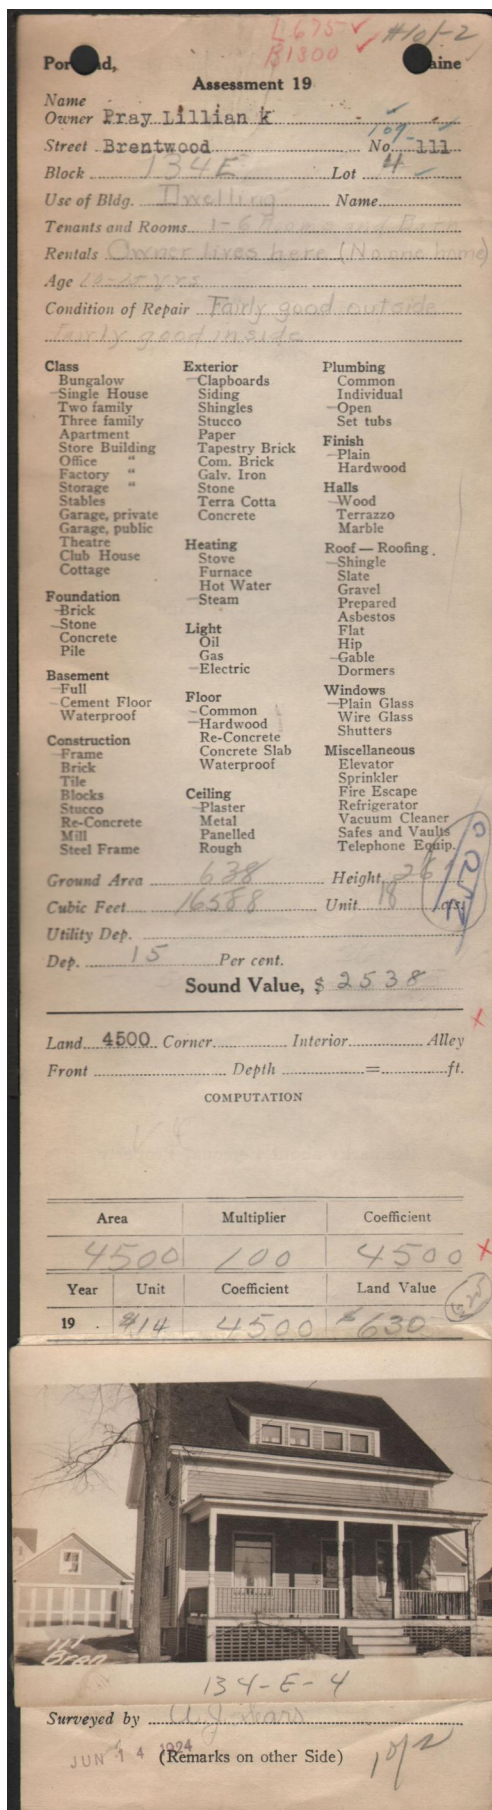 L 675 ✓ #1 of 2
B 1800 ✓
Portland, Maine
Assessment 19
Name
Owner Pray Lillian K
109
Street Brentwood No. 111
Block 134E Lot 4
Use of Bldg. Dwelling Name
Tenants and Rooms 1-6 Rooms and Bath
Rentals Owner lives here (No one home)
Age yrs
Condition of Repair Fairly good outside
Fairly good inside
Class
Bungalow
Single House
Two family
Three family
Apartment
Store Building
Office "
Factory "
Storage "
Stables
Garage, private
Garage, public
Theatre
Club House
Cottage
Foundation
Brick
Stone
Concrete
Pile
Basement
Full
Cement Floor
Waterproof
Construction
Frame
Brick
Tile
Blocks
Stucco
Re-Concrete
Mill
Steel Frame
Exterior
Clapboards
Siding
Shingles
Stucco
Paper
Tapestry Brick
Com. Brick
Galv. Iron
Stone
Terra Cotta
Concrete
Heating
Stove
Furnace
Hot Water
Steam
Light
Oil
Gas
Electric
Floor
Common
Hardwood
Re-Concrete
Concrete Slab
Waterproof
Ceiling
Plaster
Metal
Panelled
Rough
Plumbing
Common
Individual
Open
Set tubs
Finish
Plain
Hardwood
Halls
Wood
Terrazzo
Marble
Roof — Roofing
Shingle
Slate
Gravel
Prepared
Asbestos
Flat
Hip
Gable
Dormers
Windows
Plain Glass
Wire Glass
Shutters
Miscellaneous
Elevator
Sprinkler
Fire Escape
Refrigerator
Vacuum Cleaner
Safes and Vaults
Telephone Equip.
Ground Area 638 Height 26
Cubic Feet 16588 Unit 18
Utility Dep.
Dep. 15 Per cent.
Sound Value, $ 2538
Land 4500 Corner Interior Alley
Front Depth = ft.
COMPUTATION
Area Multiplier Coefficient
4500 100 4500
Year Unit Coefficient Land Value
19 . $14 4500 $630
111
Bren
134-E-4
Surveyed by
JUN 14 1924 (Remarks on other Side) 1 of 2